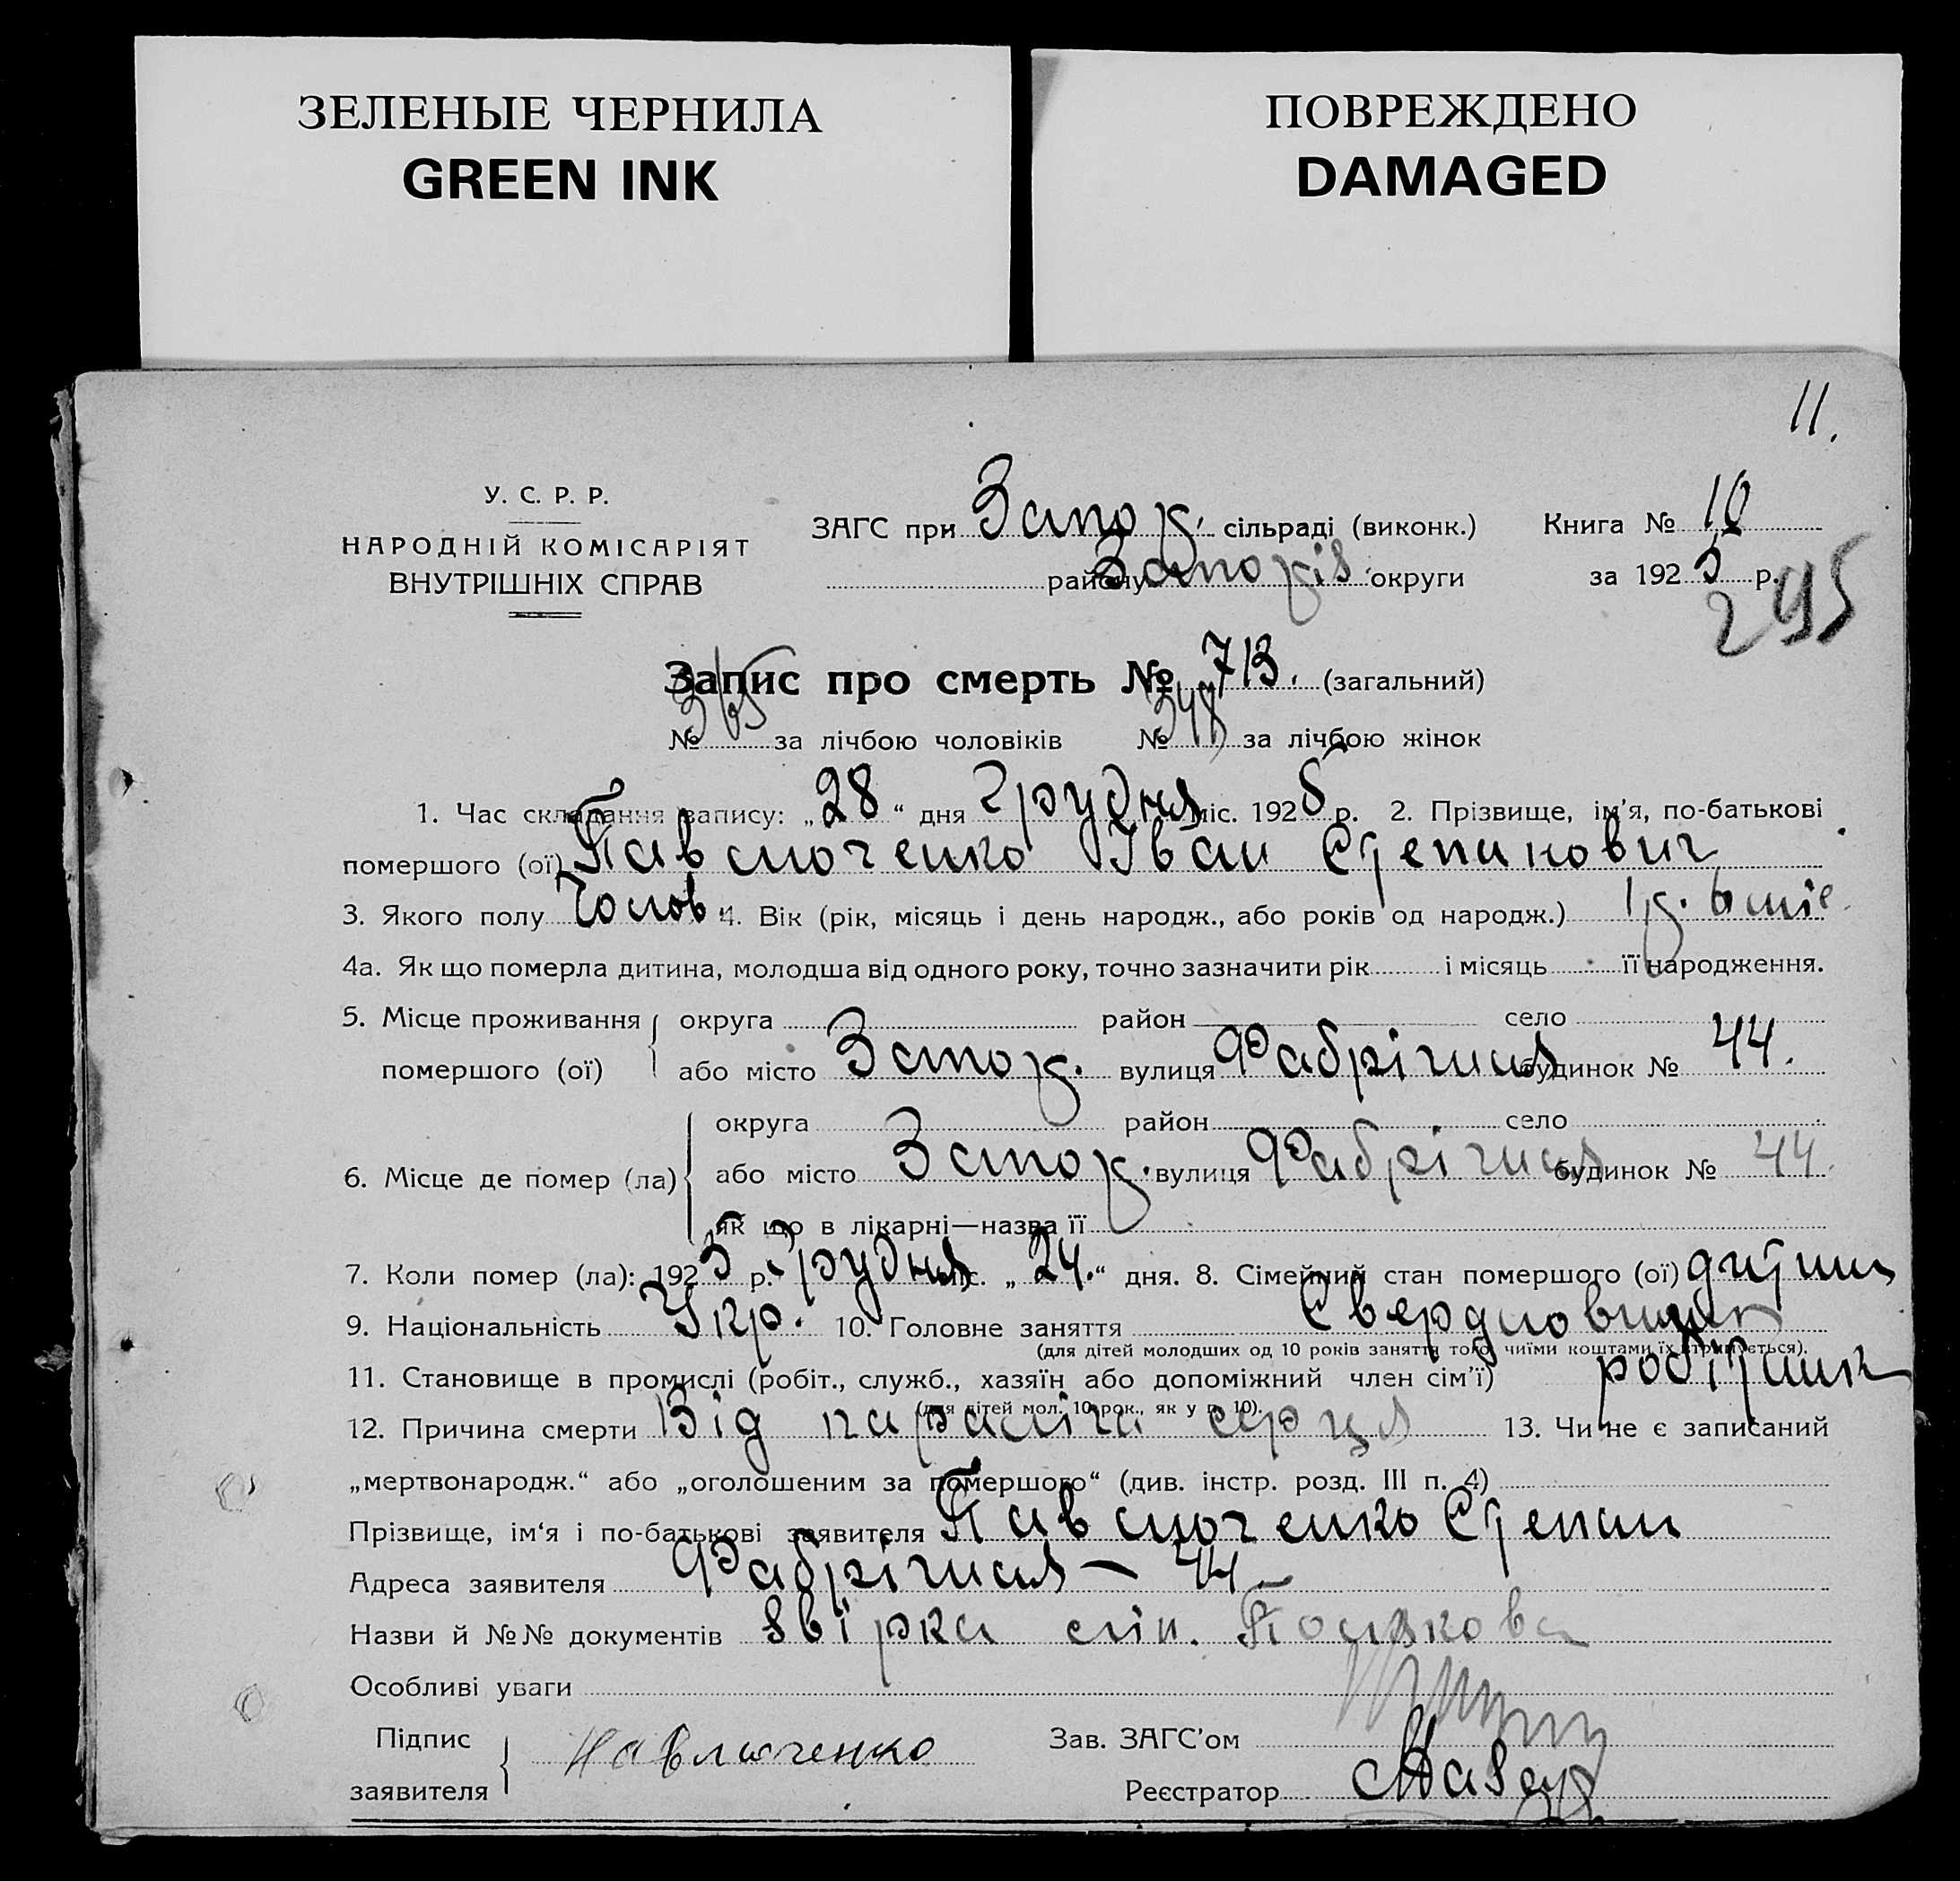 ЗЕЛЕНЫЕ ЧЕРНИЛА
GREEN INK
ПОВРЕЖДЕНО
DAMAGED
11.
У. С. Р. Р.
НАРОДНІЙ КОМІСАРІЯТ
ВНУТРІШНІХ СПРАВ
ЗАГС при Запор. сільраді (виконк.)
району Запоріз. округи
Книга № 10
за 1925 р.
295
Запис про смерть № 713. (загальний)
№ 365 за лічбою чоловіків № 348 за лічбою жінок
1. Час складання запису: „28“ дня Грудня міс. 1925 р. 2. Прізвище, ім’я, по-батькові
помершого (ої) Павлюченко Іван Степанович
3. Якого полу Чолов. 4. Вік (рік, місяць і день народж., або років од народж.) 1 р. 6 міс.
4а. Як що померла дитина, молодша від одного року, точно зазначити рік і місяць її народження.
5. Місце проживання помершого (ої) округа район село
або місто Запор. вулиця Фабрічная будинок № 44.
6. Місце де помер (ла) округа район село
або місто Запор. вулиця Фабрічная будинок № 44.
як що в лікарні—назва її
7. Коли помер (ла): 1925 р. Грудня міс. „24.“ дня. 8. Сімейний стан помершого (ої) дитина
9. Національність Укр. 10. Головне заняття
(для дітей молодших од 10 років заняття того, чиїми коштами їх втримується).
11. Становище в промислі (робіт., служб., хазяїн або допоміжний член сім’ї) робітник
(для дітей мол. 10 рок., як у п. 10).
12. Причина смерти Від параліча серця 13. Чи не є записаний
„мертвонародж.“ або „оголошеним за помершого“ (див. інстр. розд. III п. 4)
Прізвище, ім‘я і по-батькові заявителя Павлюченко Степан
Адреса заявителя Фабрічная — 44.
Назви й №№ документів
Особливі уваги
Підпис заявителя Павлюченко
Зав. ЗАГС’ом
Реєстратор